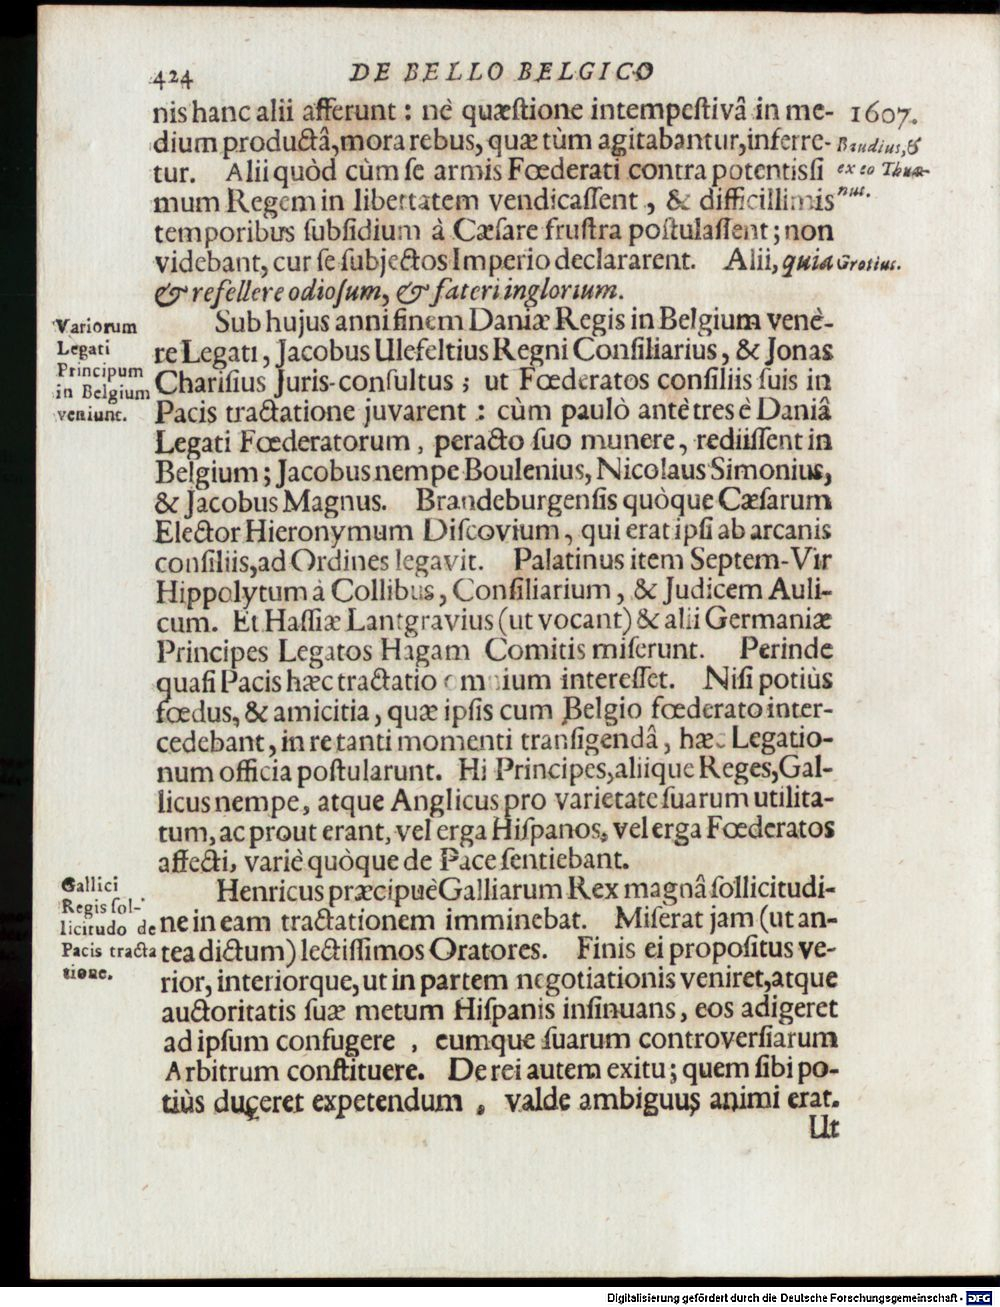 424 DE BELLO BELGICO
nis hanc alii afferunt : nè quæſtione intempeſtivâ in me-
dium productâ, mora rebus, quæ tùm agitabantur, inferre-
tur. Alii quòd cùm ſe armis Fœderati contra potentiſſi
mum Regem in libertatem vendicaſſent, & difficillimis
temporibus ſubſidium à Cæſare fruſtra poſtulaſſent; non
videbant, cur ſe ſubjectos Imperio declararent. Alii, quia
& refellere odioſum, & fateri inglorium.
1607.
Baudius, &
ex eo Thua-
nus.
Grotius.
Variorum
Legati
Principum
in Belgium
veniunt.
Sub hujus anni finem Daniæ Regis in Belgium venè-
re Legati, Jacobus Ulefeltius Regni Conſiliarius, & Jonas
Chariſius Juris-conſultus ; ut Fœderatos conſiliis ſuis in
Pacis tractatione juvarent : cùm paulò antè tres è Daniâ
Legati Fœderatorum, peracto ſuo munere, rediiſſent in
Belgium; Jacobus nempe Boulenius, Nicolaus Simonius,
& Jacobus Magnus. Brandeburgenſis quòque Cæſarum
Elector Hieronymum Diſcovium, qui erat ipſi ab arcanis
conſiliis, ad Ordines legavit. Palatinus item Septem-Vir
Hippolytum à Collibus, Conſiliarium, & Judicem Auli-
cum. Et Haſſiæ Lantgravius (ut vocant) & alii Germaniæ
Principes Legatos Hagam Comitis miſerunt. Perinde
quaſi Pacis hæc tractatio omnium intereſſet. Niſi potiùs
fœdus, & amicitia, quæ ipſis cum Belgio fœderato inter-
cedebant, in re tanti momenti tranſigendâ, hæc Legatio-
num officia poſtularunt. Hi Principes, aliique Reges, Gal-
licus nempe, atque Anglicus pro varietate ſuarum utilita-
tum, ac prout erant, vel erga Hiſpanos, vel erga Fœderatos
affecti, variè quòque de Pace ſentiebant.
Gallici
Regis ſol-
licitudo de
Pacis tracta
tione.
Henricus præcipuè Galliarum Rex magnâ ſollicitudi-
ne in eam tractationem imminebat. Miſerat jam (ut an-
tea dictum) lectiſſimos Oratores. Finis ei propoſitus ve-
rior, interiorque, ut in partem negotiationis veniret, atque
auctoritatis ſuæ metum Hiſpanis inſinuans, eos adigeret
ad ipſum confugere , eumque ſuarum controverſiarum
Arbitrum conſtituere. De rei autem exitu; quem ſibi po-
tiùs duceret expetendum , valde ambiguus animi erat.
Ut
Digitalisierung gefördert durch die Deutsche Forschungsgemeinschaft - DFG